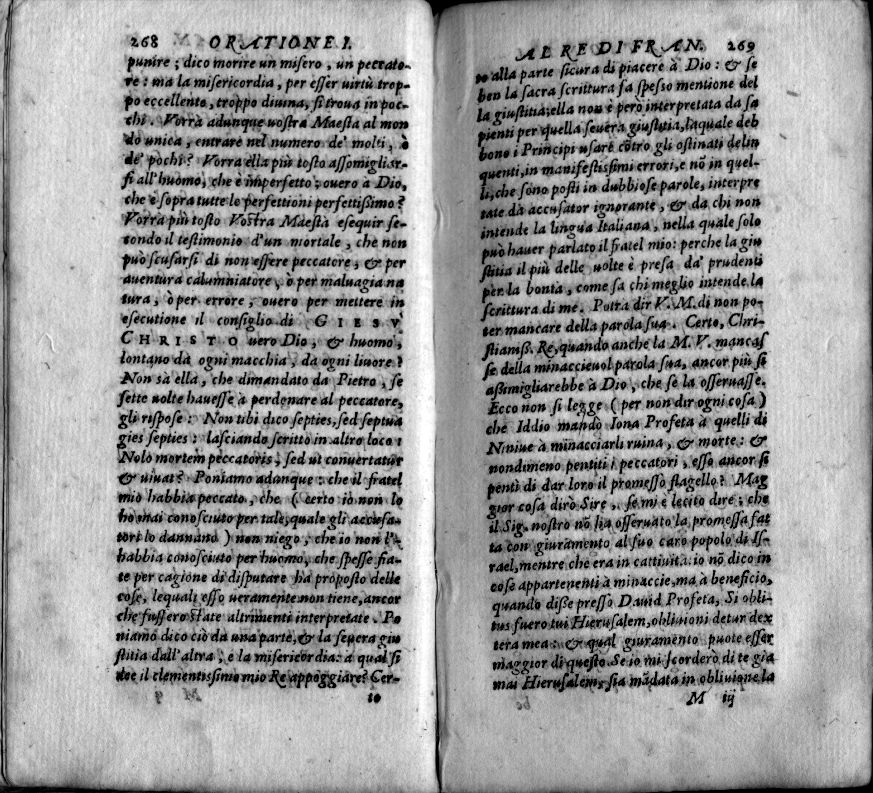 268 ORATIONE I.
punire ; dico morire un misero , un peccato-
re : ma la misericordia , per esser uirtù trop-
po eccellente , troppo diuina, si troua in poc-
chi . Vorrà adunque uostra Maestà al mon
do unica , entrare nel numero de' molti , ò
de' pochi ? Vorra ella più tosto assomigliar-
si all'huomo, che è imperfetto ; ouero à Dio,
che è sopra tutte le perfettioni perfettißimo ?
Vorrà più tosto Vostra Maestà esequir se-
condo il testimonio d'un mortale , che non
può scusarsi di non essere peccatore , & per
auentura calumniatore , ò per maluagia na
tura , ò per errore , ouero per mettere in
esecutione il consiglio di GIESV
CHRISTO uero Dio , & huomo ,
lontano da ogni macchia , da ogni liuore ?
Non sà ella , che dimandato da Pietro , se
sette uolte hauesse à perdonare al peccatore,
gli rispose : Non tibi dico septies, sed septua
gies septies : lasciando scritto in altro loco :
Nolo mortem peccatoris , sed ut conuertatur
& uiuat ? Poniamo adunque : che il fratel
mio habbia peccato , che ( certo io non lo
ho mai conosciuto per tale, quale gli accusa-
tori lo dannano ) non niego , che io non l'-
habbia conosciuto per huomo, che spesse fia-
te per cagione di disputare ha proposto delle
cose , lequali esso ueramente non tiene, ancor
che fussero state altrimenti interpretate . Po
niamo dico ciò da una parte, & la seuera giu
stitia dall'altra , e la misericordia : a qual si
dee il clementissimo mio Re appoggiare ? Cer-
to
AL RE DI FRAN. 269
to alla parte sicura di piacere à Dio : & se
ben la sacra scrittura fa spesso mentione del
la giustitia; ella non è però interpretata da sa
pienti per quella seuera giustitia, laquale deb
bono i Principi usare cōtro gli ostinati delin
quenti, in manifestissimi errori, e nō in quel-
li, che sono posti in dubbiose parole, interpre
tate dà accusator ignorante , & da chi non
intende la lingua Italiana , nella quale solo
può hauer parlato il fratel mio : perche la giu
stitia il più delle uolte è presa da' prudenti
per la bontà , come sa chi meglio intende la
scrittura di me. Potra dir V. M. di non po-
ter mancare della parola sua . Certo, Chri-
stianiss. Re, quando anche la M. V. mancas
se della minaccieuol parola sua, ancor più si
aßimigliarebbe à Dio , che se la osseruasse.
Ecco non si legge ( per non dir ogni cosa )
che Iddio mandò Iona Profeta à quelli di
Niniue à minacciarli ruina , & morte : &
nondimeno pentiti i peccatori , esso ancor si
pentì di dar loro il promesso flagello ? Mag
gior cosa dirò Sire , se mi è lecito dire ; che
il Sig. nostro nō ha osseruato la promessa fat
ta con giuramento al suo caro popolo di Is-
rael, mentre che era in cattiuità: io nō dico in
cose appartenenti à minaccie, ma à beneficio,
quando diße presso Dauid Profeta, Si obli-
tus fuero tui Hierusalem, obliuioni detur dex
tera mea : & qual giuramento puote esser
maggior di questo. Se io mi scorderò di te gia
mai Hierusalem, sia mādata in obliuione la
M iij